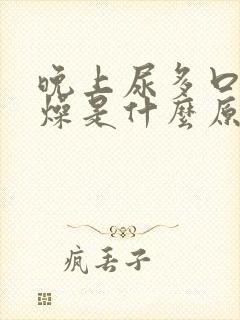 晚上尿多口
燥是什麼原
疯丢子